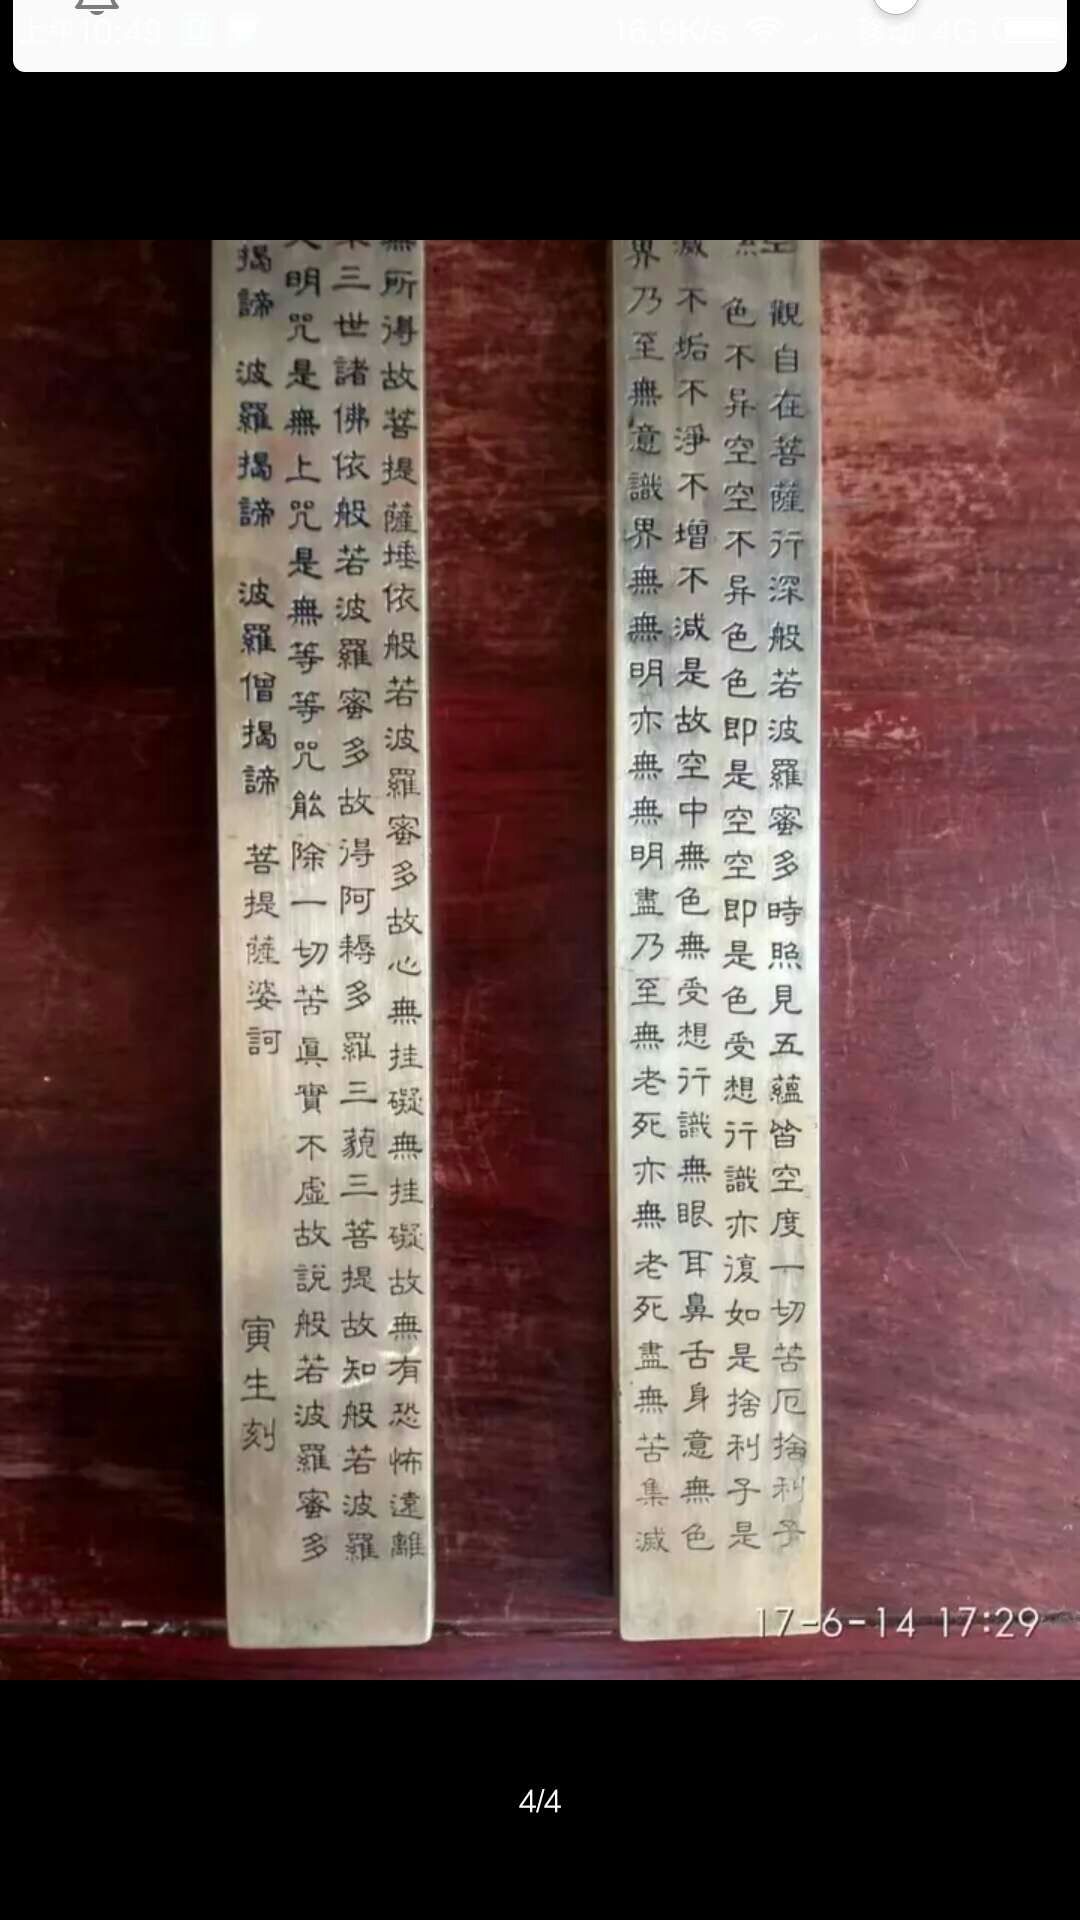 上午10:49
16.9K/s 4G
觀自在菩薩行深般若波羅蜜多時照見五蘊皆空度一切苦厄捨利子
色不异空空不异色色即是空空即是色受想行識亦復如是捨利子是
滅不垢不淨不增不減是故空中無色無受想行識無眼耳鼻舌身意無色
界乃至無意識界無無明亦無無明盡乃至無老死亦無老死盡無苦集滅
無所得故菩提薩埵依般若波羅蜜多故心無挂礙無挂礙故無有恐怖遠離
三世諸佛依般若波羅蜜多故得阿耨多羅三藐三菩提故知般若波羅
明咒是無上咒是無等等咒能除一切苦眞實不虛故說般若波羅蜜多
揭諦 波羅揭諦 波羅僧揭諦 菩提薩婆訶
寅生刻
17-6-14 17:29
4/4